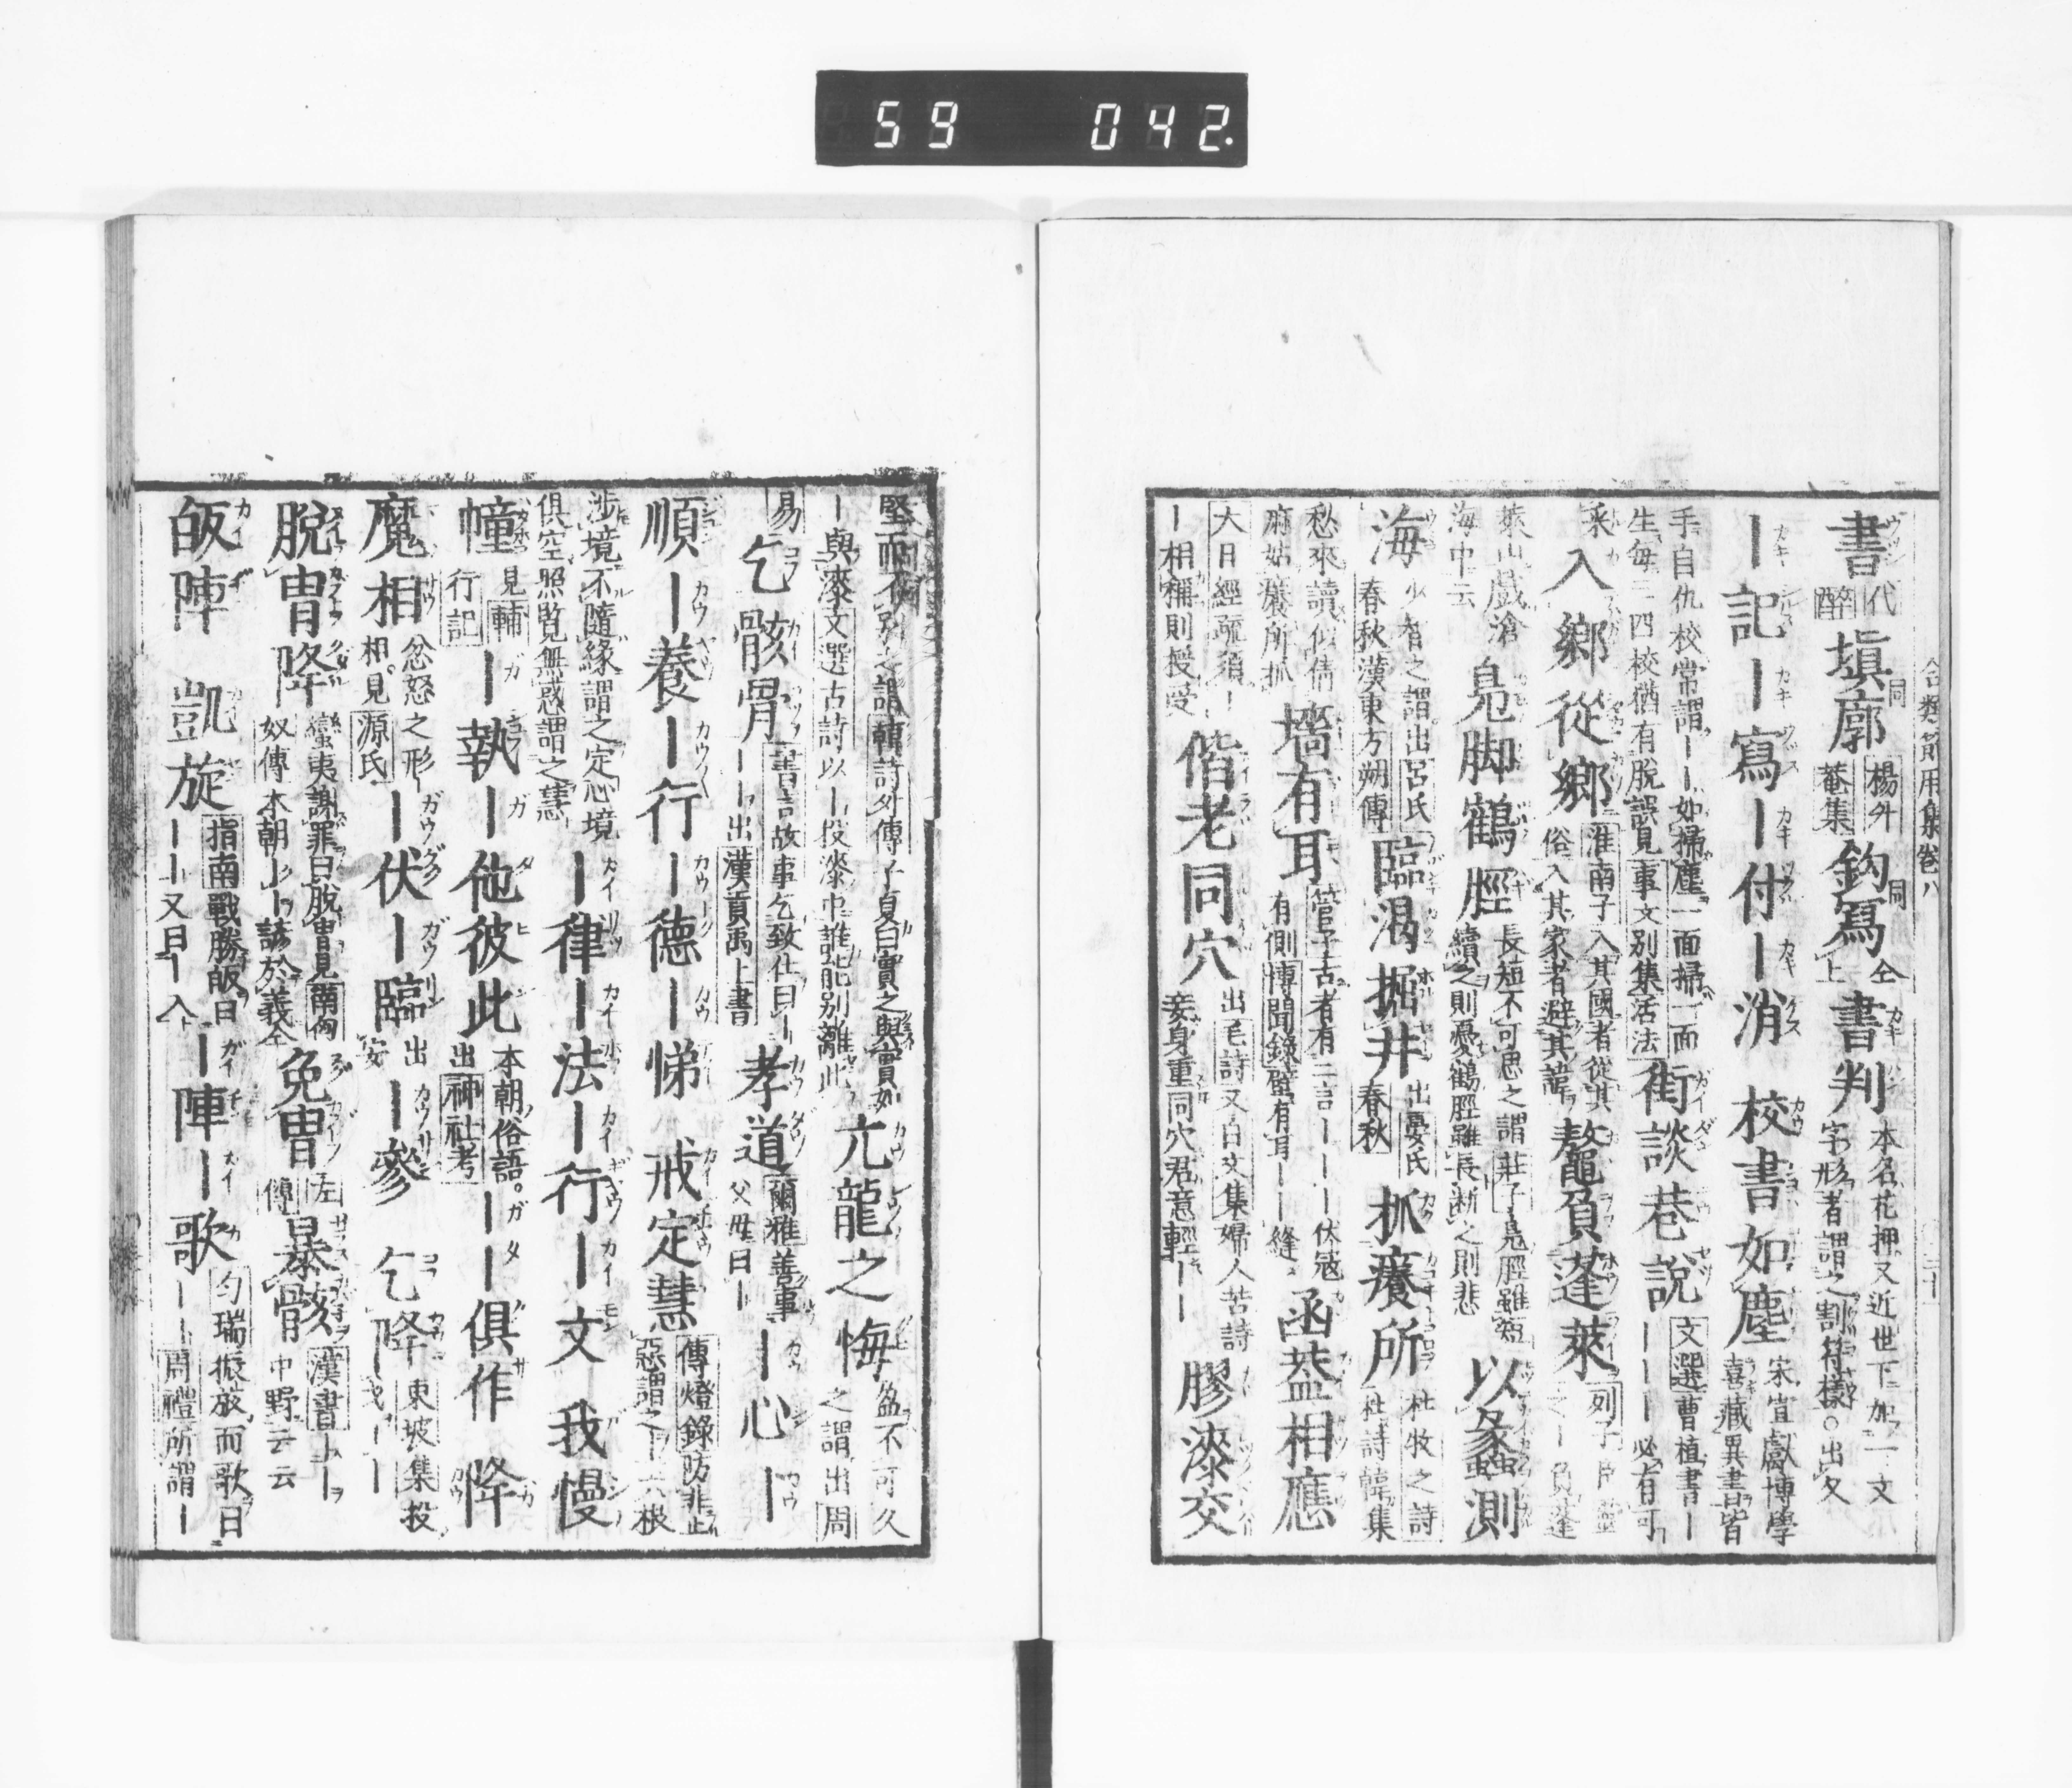 59 042
合類節用集巻八
書 代醉 塡廓 同 楊外菴集 鈎寫 同 仝上 書判 本名花押又近世下加一文字形者謂之割符様○出久
｜記｜寫｜付｜消 校書如塵 宋宣獻博學喜藏異書皆
手自仇校常謂｜｜如掃塵一面掃一面生毎三四校猶有脱誤見事文別集活法 街談巷說 文選曹植書｜｜｜｜必有可
采 入鄉從鄉 淮南子入其國者從其俗入其家者避其諱 鼇負蓬萊 列子
萊山戯滄海中云 鳧脚鶴脛 長短不可思之謂莊子鳧脛雖短續之則憂鶴脛雖長断之則悲 以蠡測
海 少智之謂出呂氏春秋漢東方朔傳 臨渴掘井 出晏氏春秋 抓癢所 杜牧之詩杜詩韓集
愁來讀似倩麻姑癢所抓 墻有耳 管子古者有二言｜｜｜｜伏寇有側博聞錄壁有耳｜｜縫 函蓋相應
大日經疏須｜｜相稱則授受 偕老同穴 出毛詩又白文集婦人苦詩妾身重同穴君意輕｜｜ 膠漆交
堅而不別之謂韓詩外傳子夏曰實之與實如
｜與漆文選古詩以｜投漆中誰能別離此 亢龍之悔 盈不可久之謂出周
易 乞骸骨 書言故事乞致仕曰｜｜｜出漢貢禹上書 孝道 爾雅善事父母曰｜ ｜心｜
順｜養｜行｜德｜悌 戒定慧 傳燈錄防非止惡謂之｜六根
涉境不隨緣謂之定心境俱空照覧無惑謂之慧 ｜律｜法｜行｜文 我慢
幢 見輔行記 ｜執｜他彼此 本朝俗語。出神社考 ｜｜俱作 降
魔相 忿怒之形相。見源氏 ｜伏｜臨 出 ｜參 乞降 東坡集投
脫冑降 蠻夷謝罪曰脫冑見南匈奴傳本朝 免冑 左傳 暴骸 漢書｜｜中野云云
皈陣 凱旋 指南戰勝皈曰｜｜又曰｜入 ｜陣｜歌 勻瑞振旅而歌曰｜｜周禮所謂｜